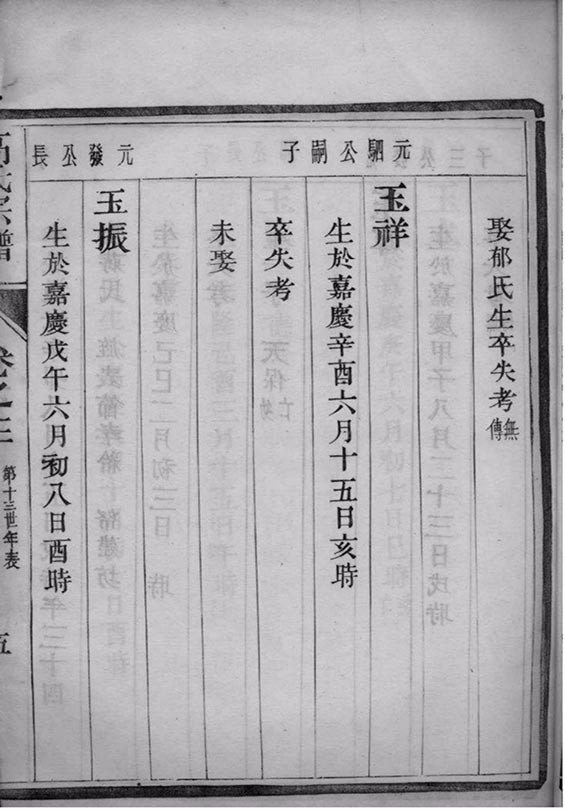 娶郁氏生卒失考無傳
元駟公嗣子
玉祥
生於嘉慶辛酉六月十五日亥時
卒失考
未娶
元發公長
玉振
生於嘉慶戊午六月初八日酉時
氏宗譜
卷之
第十三世年表
五